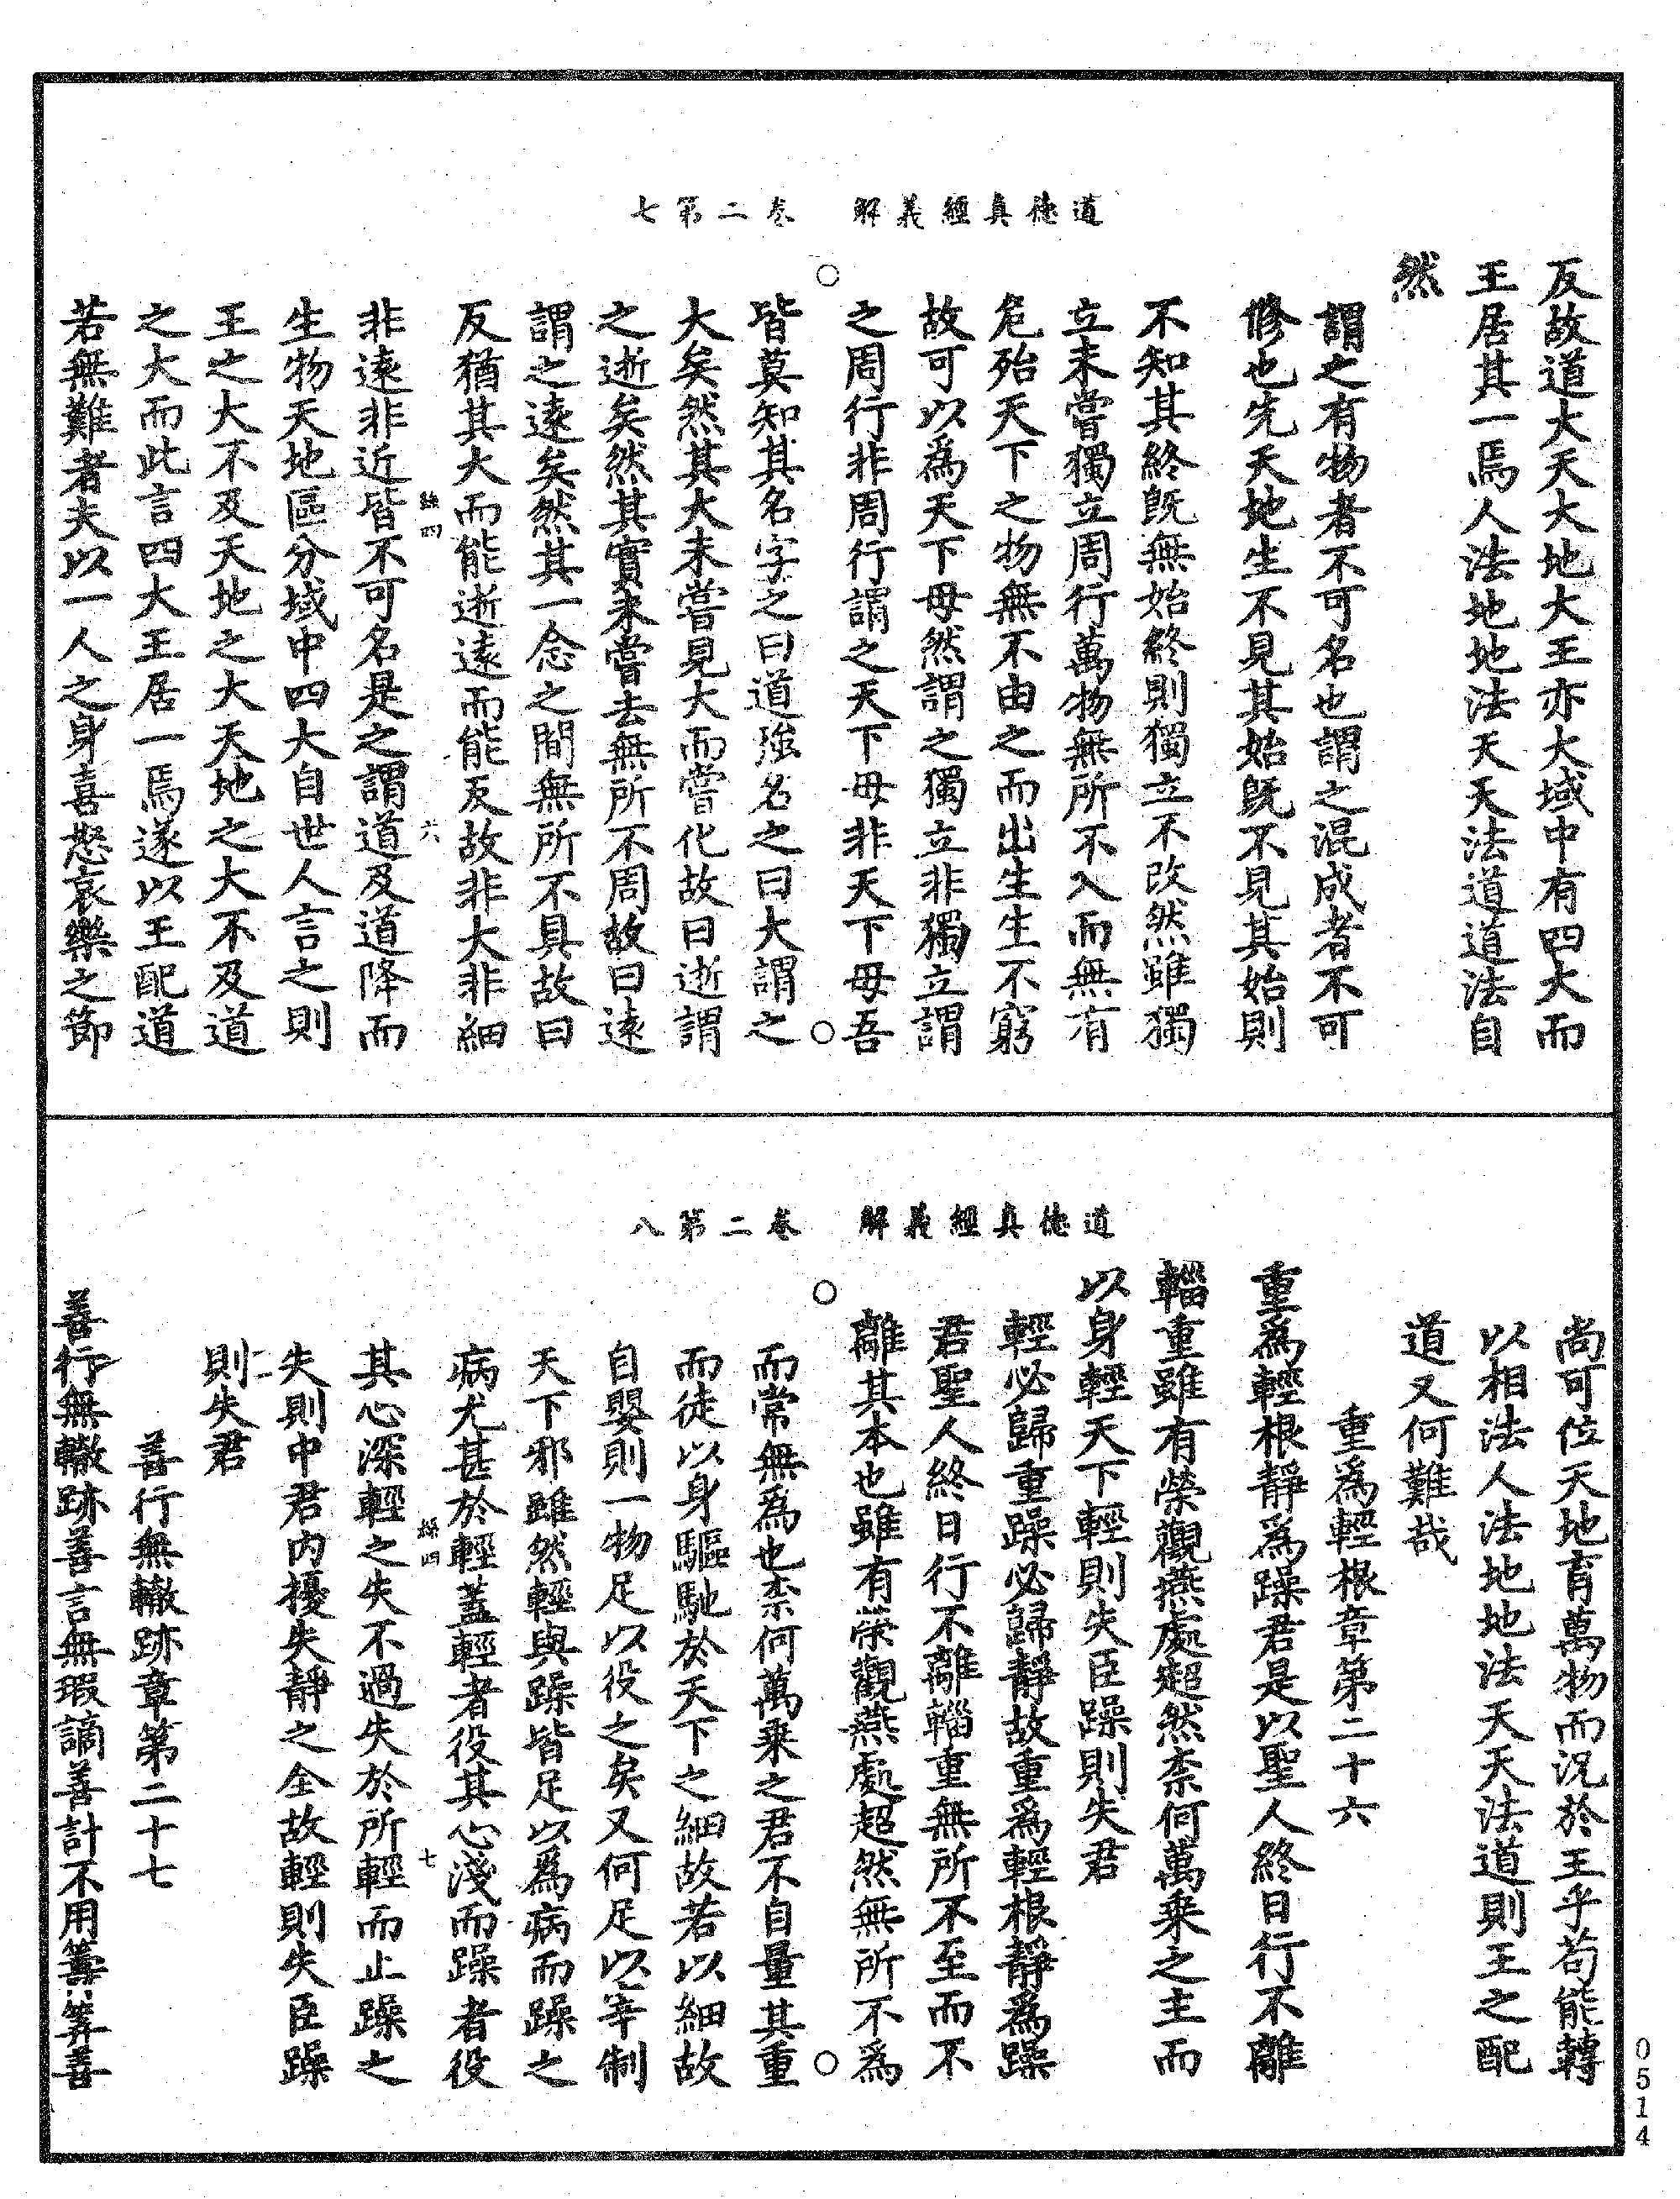 道德真經義解　卷二第七
反故道大天大地大王亦大域中有四大而
王居其一焉人法地地法天天法道道法自
然
謂之有物者不可名也謂之混成者不可
修也先天地生不見其始旣不見其始則
不知其終旣無始終則獨立不改然雖獨
立未嘗獨立周行萬物無所不入而無有
危殆天下之物無不由之而出生生不窮
故可以爲天下母然謂之獨立非獨立謂
之周行非周行謂之天下母非天下母吾
皆莫知其名字之曰道強名之曰大謂之
大矣然其大未嘗見大而嘗化故曰逝謂
之逝矣然其實未嘗去無所不周故曰遠
謂之遠矣然其一念之間無所不具故曰
反猶其大而能逝遠而能反故非大非細
絲四　六
非遠非近皆不可名是之謂道及道降而
生物天地區分域中四大自世人言之則
王之大不及天地之大天地之大不及道
之大而此言四大王居一焉遂以王配道
若無難者夫以一人之身喜怒哀樂之節
道德真經義解　卷二第八
尚可位天地育萬物而況於王乎苟能轉
以相法人法地地法天天法道則王之配
道又何難哉
重爲輕根章第二十六
重爲輕根靜爲躁君是以聖人終日行不離
輜重雖有榮觀燕處超然柰何萬乘之主而
以身輕天下輕則失臣躁則失君
輕必歸重躁必歸靜故重爲輕根靜爲躁
君聖人終日行不離輜重無所不至而不
離其本也雖有榮觀燕處超然無所不爲
而常無爲也柰何萬乘之君不自量其重
而徒以身驅馳於天下之細故若以細故
自嬰則一物足以役之矣又何足以宰制
天下邪雖然輕與躁皆足以爲病而躁之
病尤甚於輕蓋輕者役其心淺而躁者役
絲四　七
其心深輕之失不過失於所輕而止躁之
失則中君内擾失靜之全故輕則失臣躁
則失君
善行無轍跡章第二十七
善行無轍跡善言無瑕謫善計不用籌筭善
0514